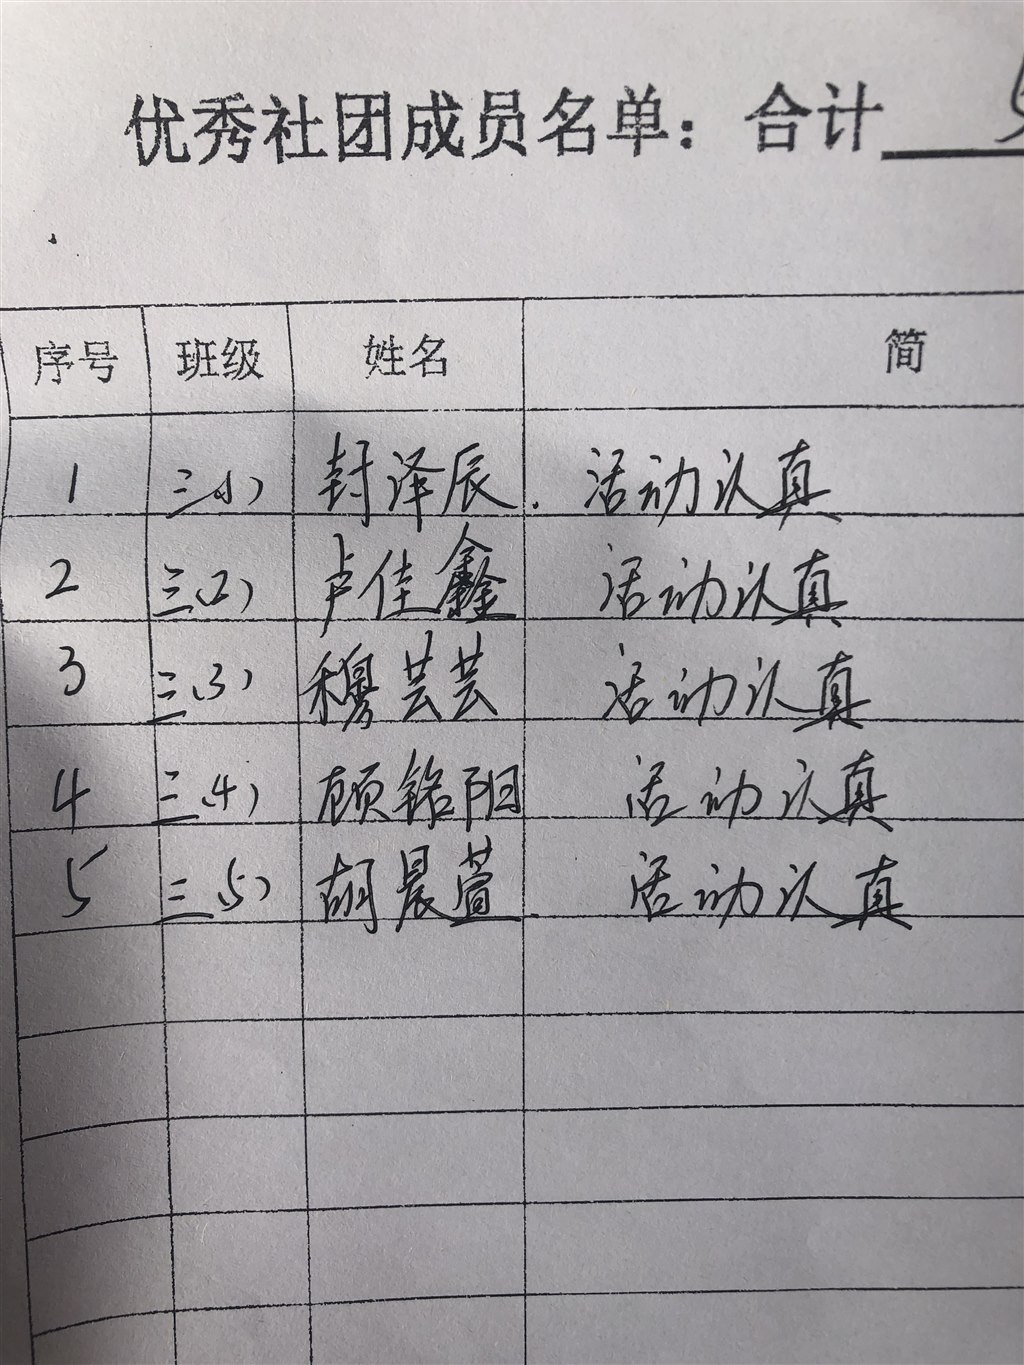 优秀社团成员名单：合计 5
序号 班级 姓名 简
1 三(1) 封泽辰 活动认真
2 三(2) 卢佳鑫 活动认真
3 三(3) 穆芸芸 活动认真
4 三(4) 顾铭阳 活动认真
5 三(5) 胡晨萱 活动认真